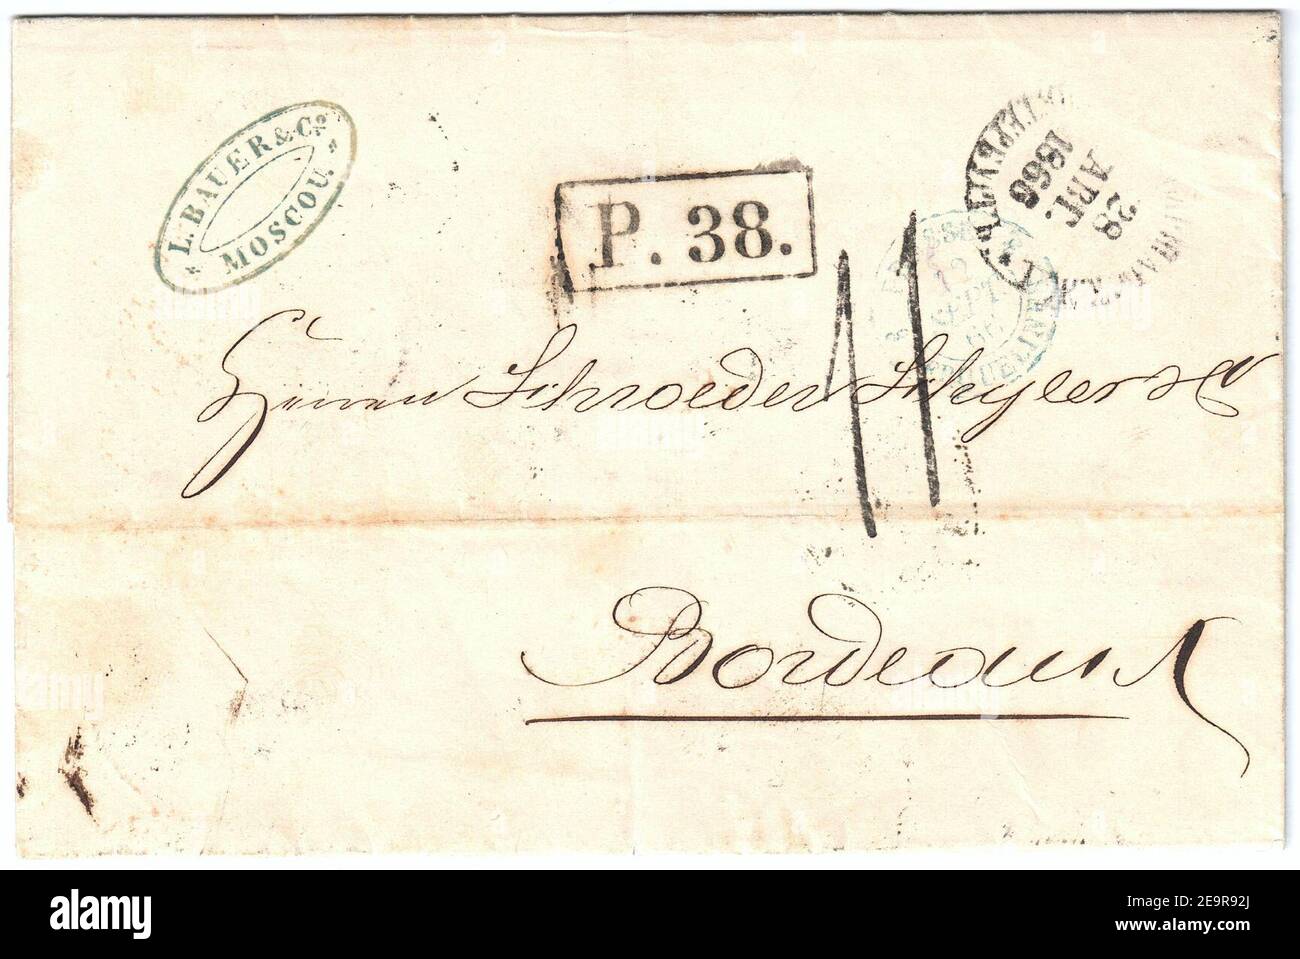 L. BAUER & Cº
MOSCOU.
P. 38.
28
АВГ.
1866
12
SEPT
66
11
Herren Schroeder Schyler & Cº
Bordeaux
alamy
Image ID: 2E9R92J
www.alamy.com